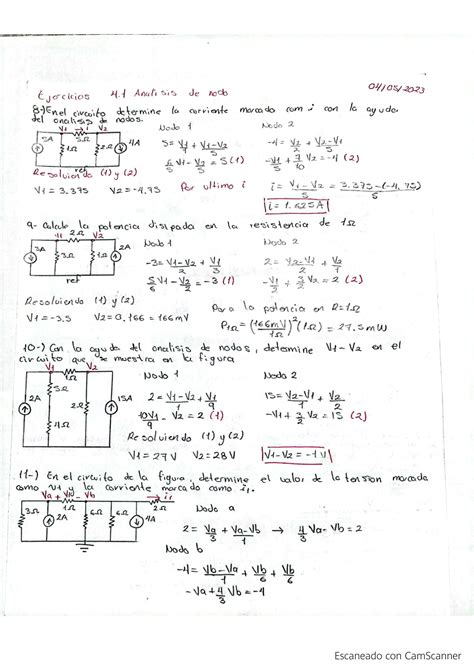 04/05/2023
Ejercicios 4.1 Analisis de nodo
8-) En el circuito determine la corriente marcado com i con la ayuda
del analisis de nodos.
V1 → i V2
5Ω
5A 1Ω 2Ω 4A
ref
Nodo 1
5 = V1/1 + V1-V2/5
6/5 V1 - V2/5 = 5 (1)
Nodo 2
-4 = V2/2 + V2-V1/5
-V1/5 + 7/10 V2 = -4 (2)
Resolviendo (1) y (2)
V1 = 3.375 V2 = -4.75
Por ultimo i
i = V1-V2/5 = 3.375-(-4.75)/5
i = 1.625 A
9- Calcule la potencia disipada en la resistencia de 1Ω
V1 2Ω V2
3A 3Ω 1Ω 2A
ref
Nodo 1
-3 = V1-V2/2 + V1/3
5/6 V1 - V2/2 = -3 (1)
Nodo 2
2 = V2-V1/2 + V2/1
-V1/2 + 3/2 V2 = 2 (2)
Resolviendo (1) y (2)
V1 = -3.5 V2 = 0.166 = 166mV
Para la potencia en R=1Ω
P1Ω = (166mV/1Ω)² (1Ω) = 27.5mW
10-) Con la ayuda del analisis de nodos, determine V1-V2 en el
circuito que se muestra en la figura
V1 V2
1Ω
2A 5Ω 4Ω 2Ω 15A
Nodo 1
2 = V1-V2/1 + V1/9
10V1/9 - V2 = 2 (1)
Nodo 2
15 = V2-V1/1 + V2/2
-V1 + 3/2 V2 = 15 (2)
Resolviendo (1) y (2)
V1 = 27V V2 = 28V
V1-V2 = -1V
11-) En el circuito de la figura, determine el valor de la tension marcada
como V1 y la corriente marcado como i1.
Va + V1 - Vb → i1
1Ω 2Ω
3Ω 2A 6Ω 6Ω 4A
Nodo a
2 = Va/3 + Va-Vb/1 → 4/3 Va - Vb = 2
Nodo b
-4 = Vb-Va/1 + Vb/6 + Vb/6
-Va + 4/3 Vb = -4
Escaneado con CamScanner